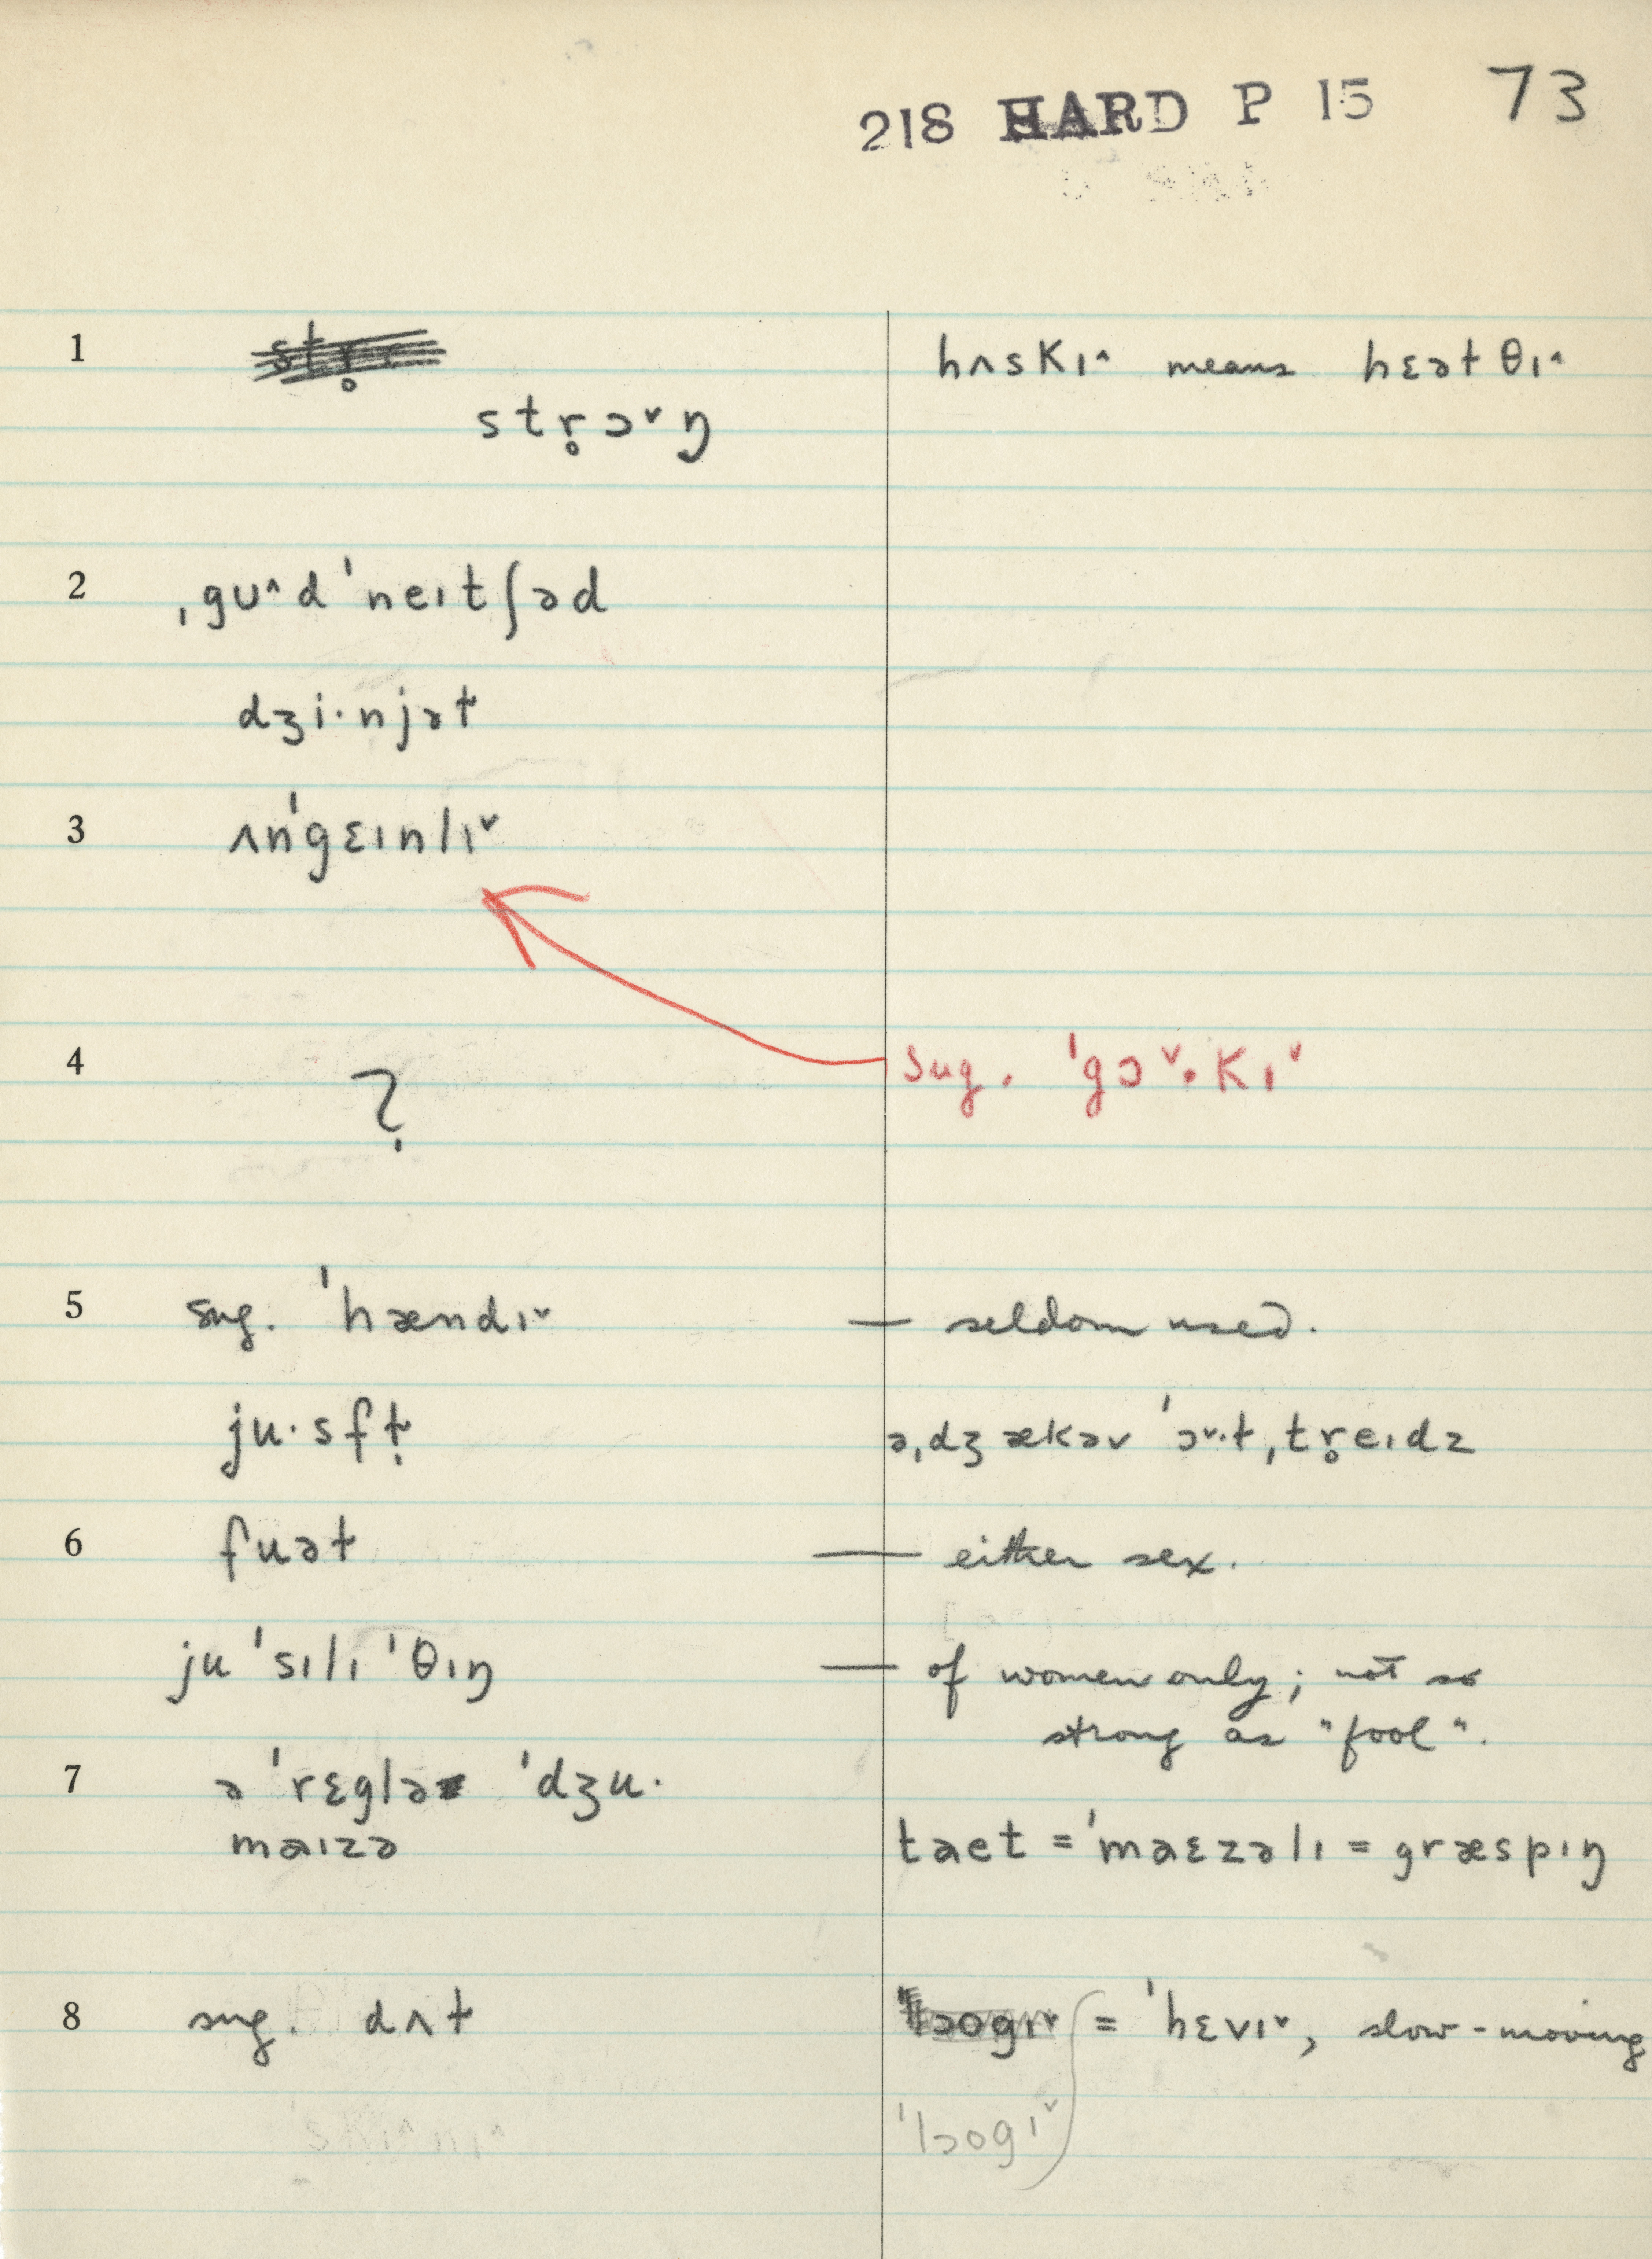 218 HARD P 15 73
1 hʌskɪ^ means hɛəɫθɪ^
strọ̥ɔˇŋ
2 ˌgʊ^dˈneɪtʃəd
dʒi·njəɫ
3 ʌnˈgɛɪnlɪˇ
4 ? Sug. ˈgɔˇ·kɪˇ
5 sug. ˈhændɪˇ — seldom used.
ju·sfɫ̩ əˌdʒækəvˈɔˇ·ɫˌtr̥eɪdz
6 fuəɫ — either sex.
juˈsɪlɪˈθɪŋ — of women only; not so
strong as "fool".
7 əˈrɛglə ˈdʒu·
maɪzə taɛt = ˈmaɛzəlɪ = græspɪŋ
8 sug. dʌɫ = ˈhɛvɪˇ, slow-moving
ˈlɔogɪˇ